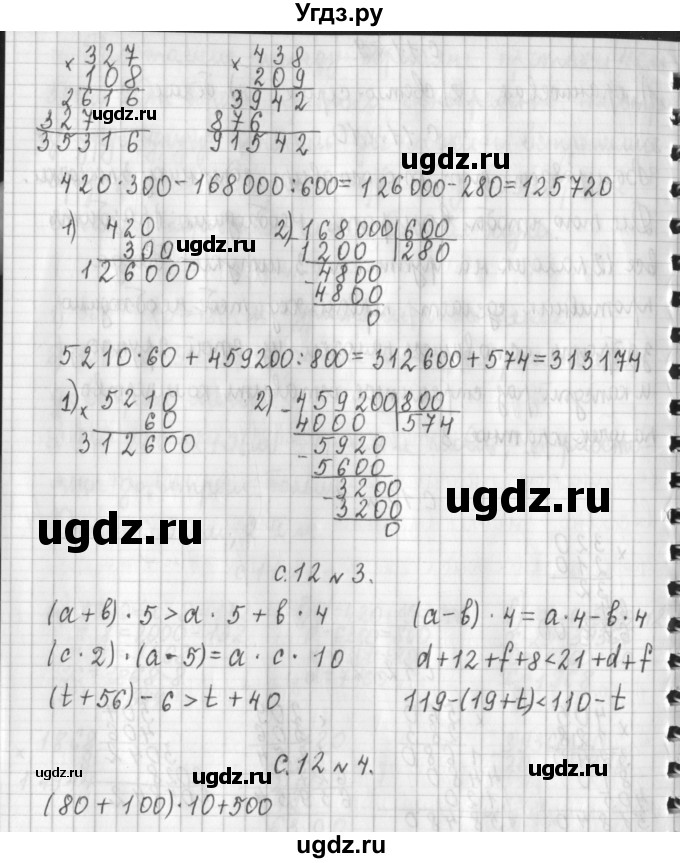 Угдз.ру
× 327
108
2616
327
35316
× 438
209
3942
876
91542
ugdz.ru
ugdz.ru
420·300-168000:600=126000-280=125720
1) 420
300
126000
ugdz.ru
2) -168000|600
1200 280
-4800
4800
0
ugdz.ru
5210·60+459200:800=312600+574=313174
1) × 5210
60
312600
2) -459200|800
4000 574
-5920
5600
-3200
3200
0
ugdz.ru
ugdz.ru
с.12 №3.
(a+b)·5>a·5+b·4
(a-b)·4=a·4-b·4
(c·2)·(a·5)=a·c·10
d+12+f+8<21+d+f
(t+56)-6>t+40
119-(19+t)<110-t
с.12 №4.
ugdz.ru
ugdz.ru
ugdz.ru
(80+100)·10+500
ugdz.ru